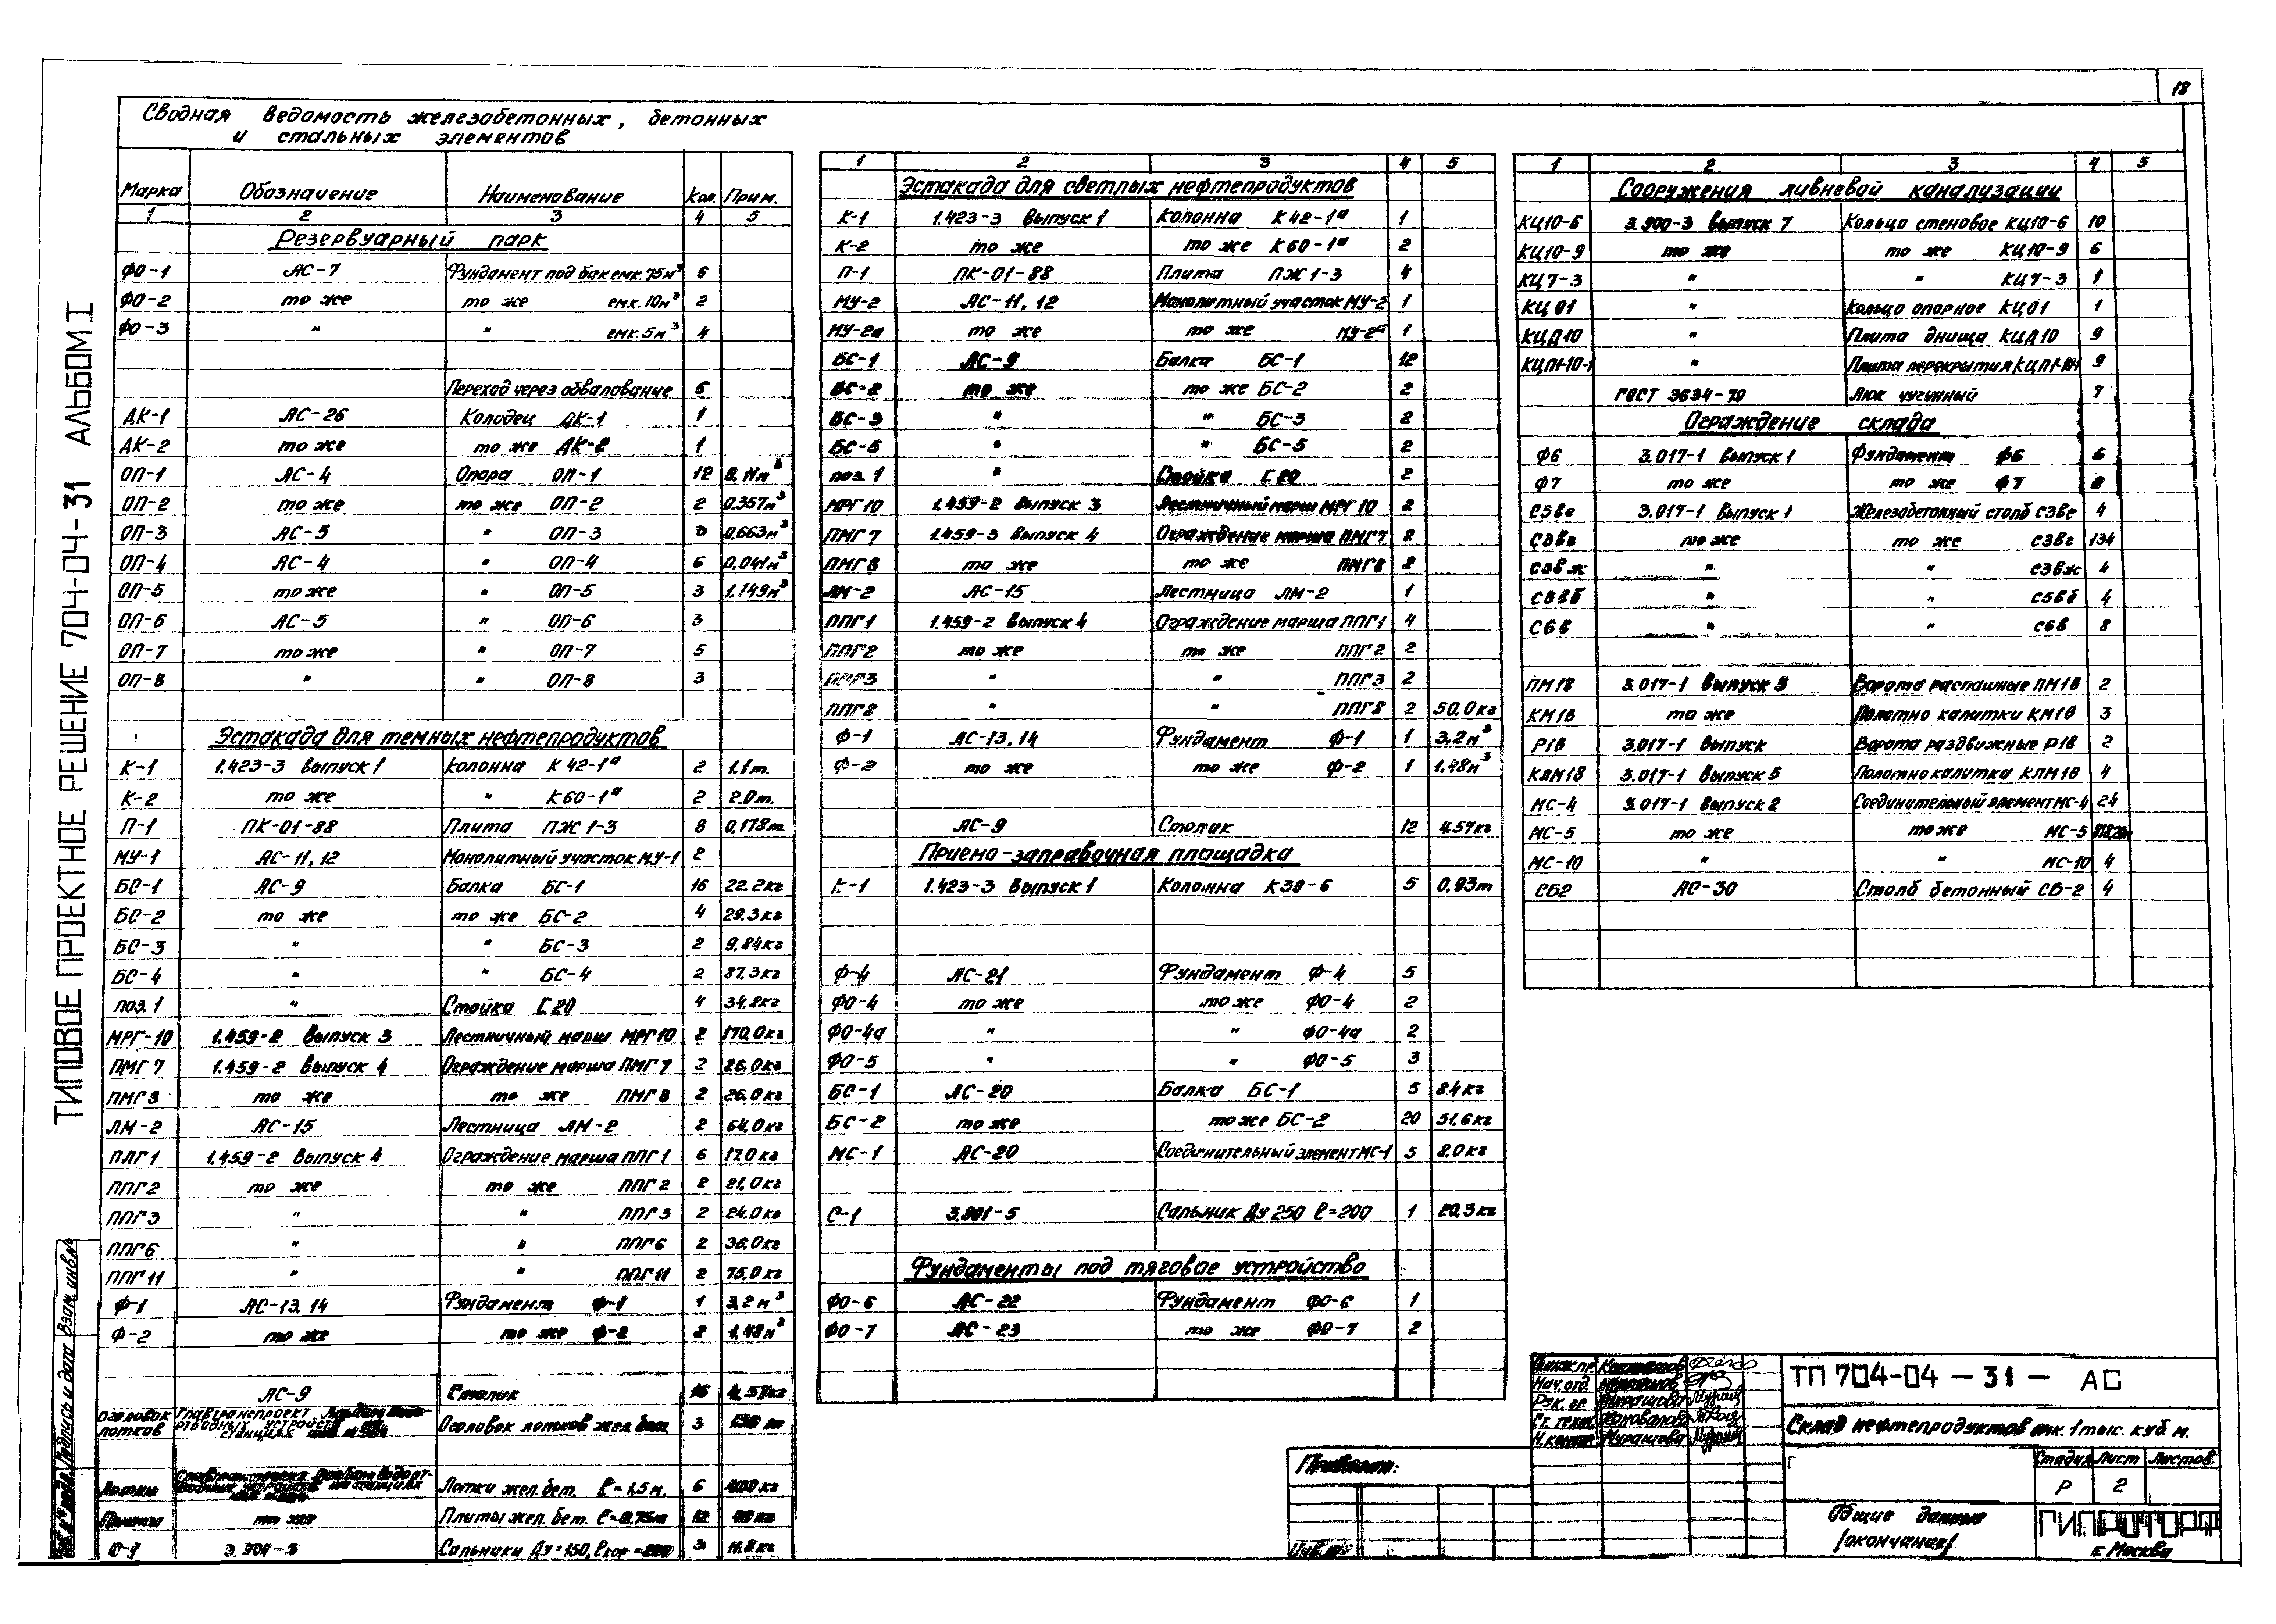 18
ТИПОВОЕ ПРОЕКТНОЕ РЕШЕНИЕ 704-04-31 АЛЬБОМ I
Сводная ведомость железобетонных, бетонных
и стальных элементов
Марка Обозначение Наименование Кол. Прим.
1 2 3 4 5
Резервуарный парк
ФО-1 АС-7 Фундамент под бак емк. 75м³ 6
ФО-2 то же то же емк. 10м³ 2
ФО-3 " " емк. 5м³ 4
Переход через обвалование 6
ДК-1 АС-26 Колодец ДК-1 1
ДК-2 то же то же ДК-2 1
ОП-1 АС-4 Опора ОП-1 12
ОП-2 то же то же ОП-2 2 0,357м³
ОП-3 АС-5 " ОП-3 0,663м³
ОП-4 АС-4 " ОП-4 6 0,041м³
ОП-5 то же " ОП-5 3 1.149м³
ОП-6 АС-5 " ОП-6 3
ОП-7 то же " ОП-7 5
ОП-8 " " ОП-8 3
Эстакада для темных нефтепродуктов
К-1 1.423-3 Выпуск 1 Колонна К 42-1а 2 1.1т.
К-2 то же " К60-1а 2 2.0т.
П-1 ПК-01-88 Плита ПЖ 1-3 8 0,178т.
МУ-1 АС-11, 12 Монолитный участок МУ-1 2
БС-1 АС-9 Балка БС-1 16 22.2кг
БС-2 то же то же БС-2 4 29.3кг
БС-3 " " БС-3 2 9.84кг
БС-4 " " БС-4 2 87.3кг
поз. 1 " Стойка С 20 4 34.8кг
МРГ-10 1.459-2 Выпуск 3 Лестничный марш МРГ10 2 170.0кг
ПМГ 7 1.459-2 Выпуск 4 Ограждение марша ПМГ 7 2 26.0кг
ПМГ 8 то же то же ПМГ 8 2 26.0кг
ЛМ-2 АС-15 Лестница ЛМ-2 2 64.0кг
ППГ 1 1.459-2 Выпуск 4 Ограждение марша ППГ 1 6 17.0кг
ППГ 2 то же то же ППГ 2 2 21.0кг
ППГ 3 " " ППГ 3 2 24.0кг
ППГ 6 " " ППГ 6 2 36.0кг
ППГ 11 " " ППГ 11 2 75.0кг
Ф-1 АС-13, 14 Фундамент Ф-1 1 3.2м³
Ф-2 то же то же Ф-2 2 1.48м³
АС-9 Столик 16 4.57кг
оголовок лотков Главтранспроект
Оголовок лотков жел.бет. 3
Лотки Лотки жел. бет. ℓ=1,5м. 6
то же Плиты жел. бет. ℓ=0.75м 12
3.901-5 Сальники Ду=150, ℓкор=200 3 11.8кг
1 2 3 4 5
Эстакада для светлых нефтепродуктов
К-1 1.423-3 Выпуск 1 Колонна К42-1а 1
К-2 то же то же К60-1а 2
П-1 ПК-01-88 Плита ПЖ 1-3 4
МУ-2 АС-11, 12 Монолитный участок МУ-2 1
МУ-2а то же то же МУ-2а 1
БС-1 АС-9 Балка БС-1 12
БС-2 то же то же БС-2 2
БС-3 " " БС-3 2
БС-5 " " БС-5 2
поз. 1 " Стойка С 20 2
МРГ 10 1.459-2 Выпуск 3 Лестничный марш МРГ 10 2
ПМГ 7 1.459-3 Выпуск 4 Ограждение марша ПМГ7 2
ПМГ 8 то же то же ПМГ8 2
ЛМ-2 АС-15 Лестница ЛМ-2 1
ППГ 1 1.459-2 Выпуск 4 Ограждение марша ППГ1 4
ППГ 2 то же то же ППГ 2 2
ППГ 3 " " ППГ3 2
ППГ 8 " " ППГ8 2 50.0кг
Ф-1 АС-13, 14 Фундамент Ф-1 1 3.2м³
Ф-2 то же то же Ф-2 1 1.48м³
АС-9 Столик 12 4.57кг
Приемо-заправочная площадка
К-1 1.423-3 Выпуск 1 Колонна К30-6 5 0.93т
Ф-4 АС-21 Фундамент Ф-4 5
ФО-4 то же то же ФО-4 2
ФО-4а " " ФО-4а 2
ФО-5 " " ФО-5 3
БС-1 АС-20 Балка БС-1 5 84кг
БС-2 то же то же БС-2 20 51.6кг
МС-1 АС-20 Соединительный элемент МС-1 5 8.0кг
С-1 3.901-5 Сальник Ду 250 ℓ=200 1 20.3кг
Фундаменты под тяговое устройство
ФО-6 АС-22 Фундамент ФО-6 1
ФО-7 АС-23 то же ФО-7 2
1 2 3 4 5
Сооружения ливневой канализации
КЦ10-6 3.900-3 Выпуск 7 Кольцо стеновое КЦ10-6 10
КЦ10-9 то же то же КЦ10-9 6
КЦ7-3 " " КЦ7-3 1
КЦО1 " Кольцо опорное КЦО1 1
КЦД10 " Плита днища КЦД10 9
КЦП1-10-1 " Плита перекрытия КЦП1-10-1 9
ГОСТ 3634-79 Люк чугунный 7
Ограждение склада
Ф6 3.017-1 Выпуск 1 Фундамент Ф6 6
Ф7 то же то же Ф7
С3ве 3.017-1 Выпуск 1 Железобетонный столб С3ве 4
С3вг то же то же С3вг 134
С3вж " " С3вж 4
" " С5вб 4
С6в " " С6в 8
ПМ1В 3.017-1 Выпуск 5 Ворота распашные ПМ1В 2
КМ1В то же Полотно калитки КМ1В 3
Р1В 3.017-1 Выпуск Ворота раздвижные Р1В 2
КЛМ1В 3.017-1 Выпуск 5 Полотно калитка КЛМ1В 4
МС-4 3.017-1 Выпуск 2 Соединительный элемент МС-4 24
МС-5 то же то же МС-5
МС-10 " " МС-10 4
СБ2 АС-30 Столб бетонный СБ-2 4
Взам. инв.№
Подпись и дата
Привязан:
Инв.№
Нач. отд.
Рук. гр. Мурашова
Ст. техн. Коновалова
Н. контр. Мурашова
ТП 704-04-31- АС
Склад нефтепродуктов емк. 1 тыс. куб. м.
Стадия Лист Листов
Р 2
Общие данные
(окончание)
ГИПРОТОРФ
г. Москва